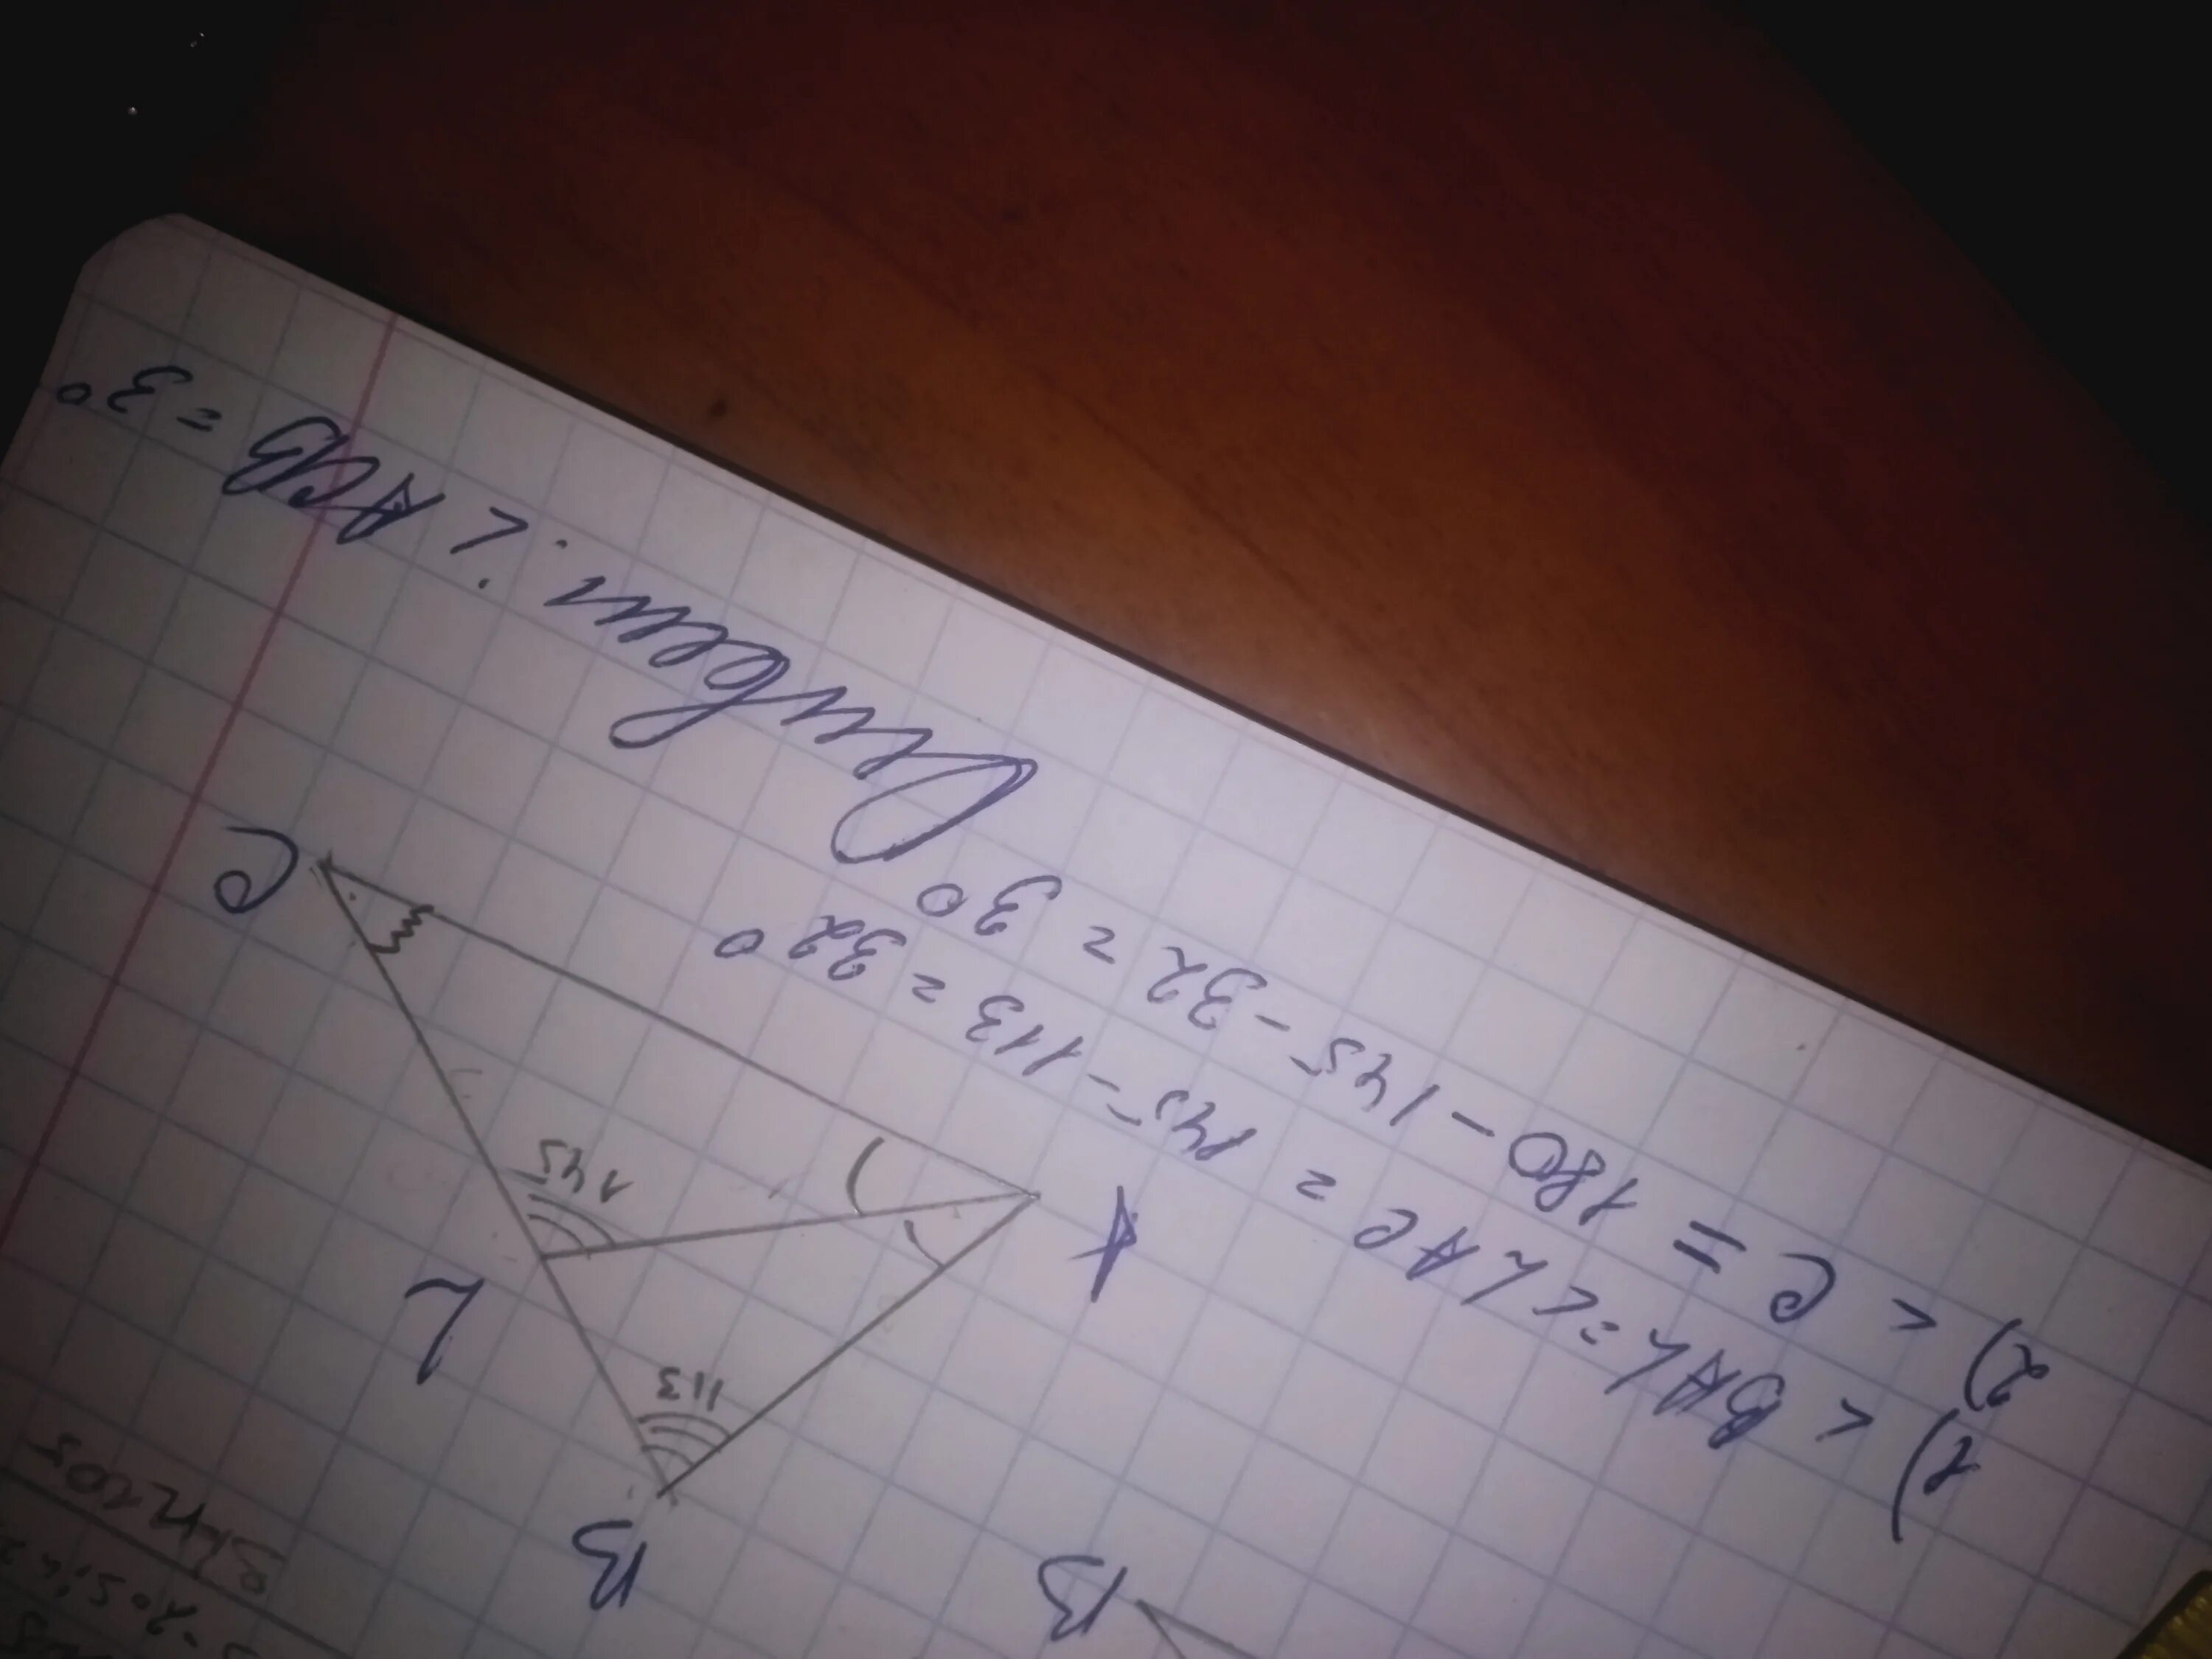 B
B
113
L
145
A
C
1) < BAL = < LAC = 145 - 113 = 32°
2) < C = 180 - 145 - 32 = 3°
Ответ: < ACB = 3°